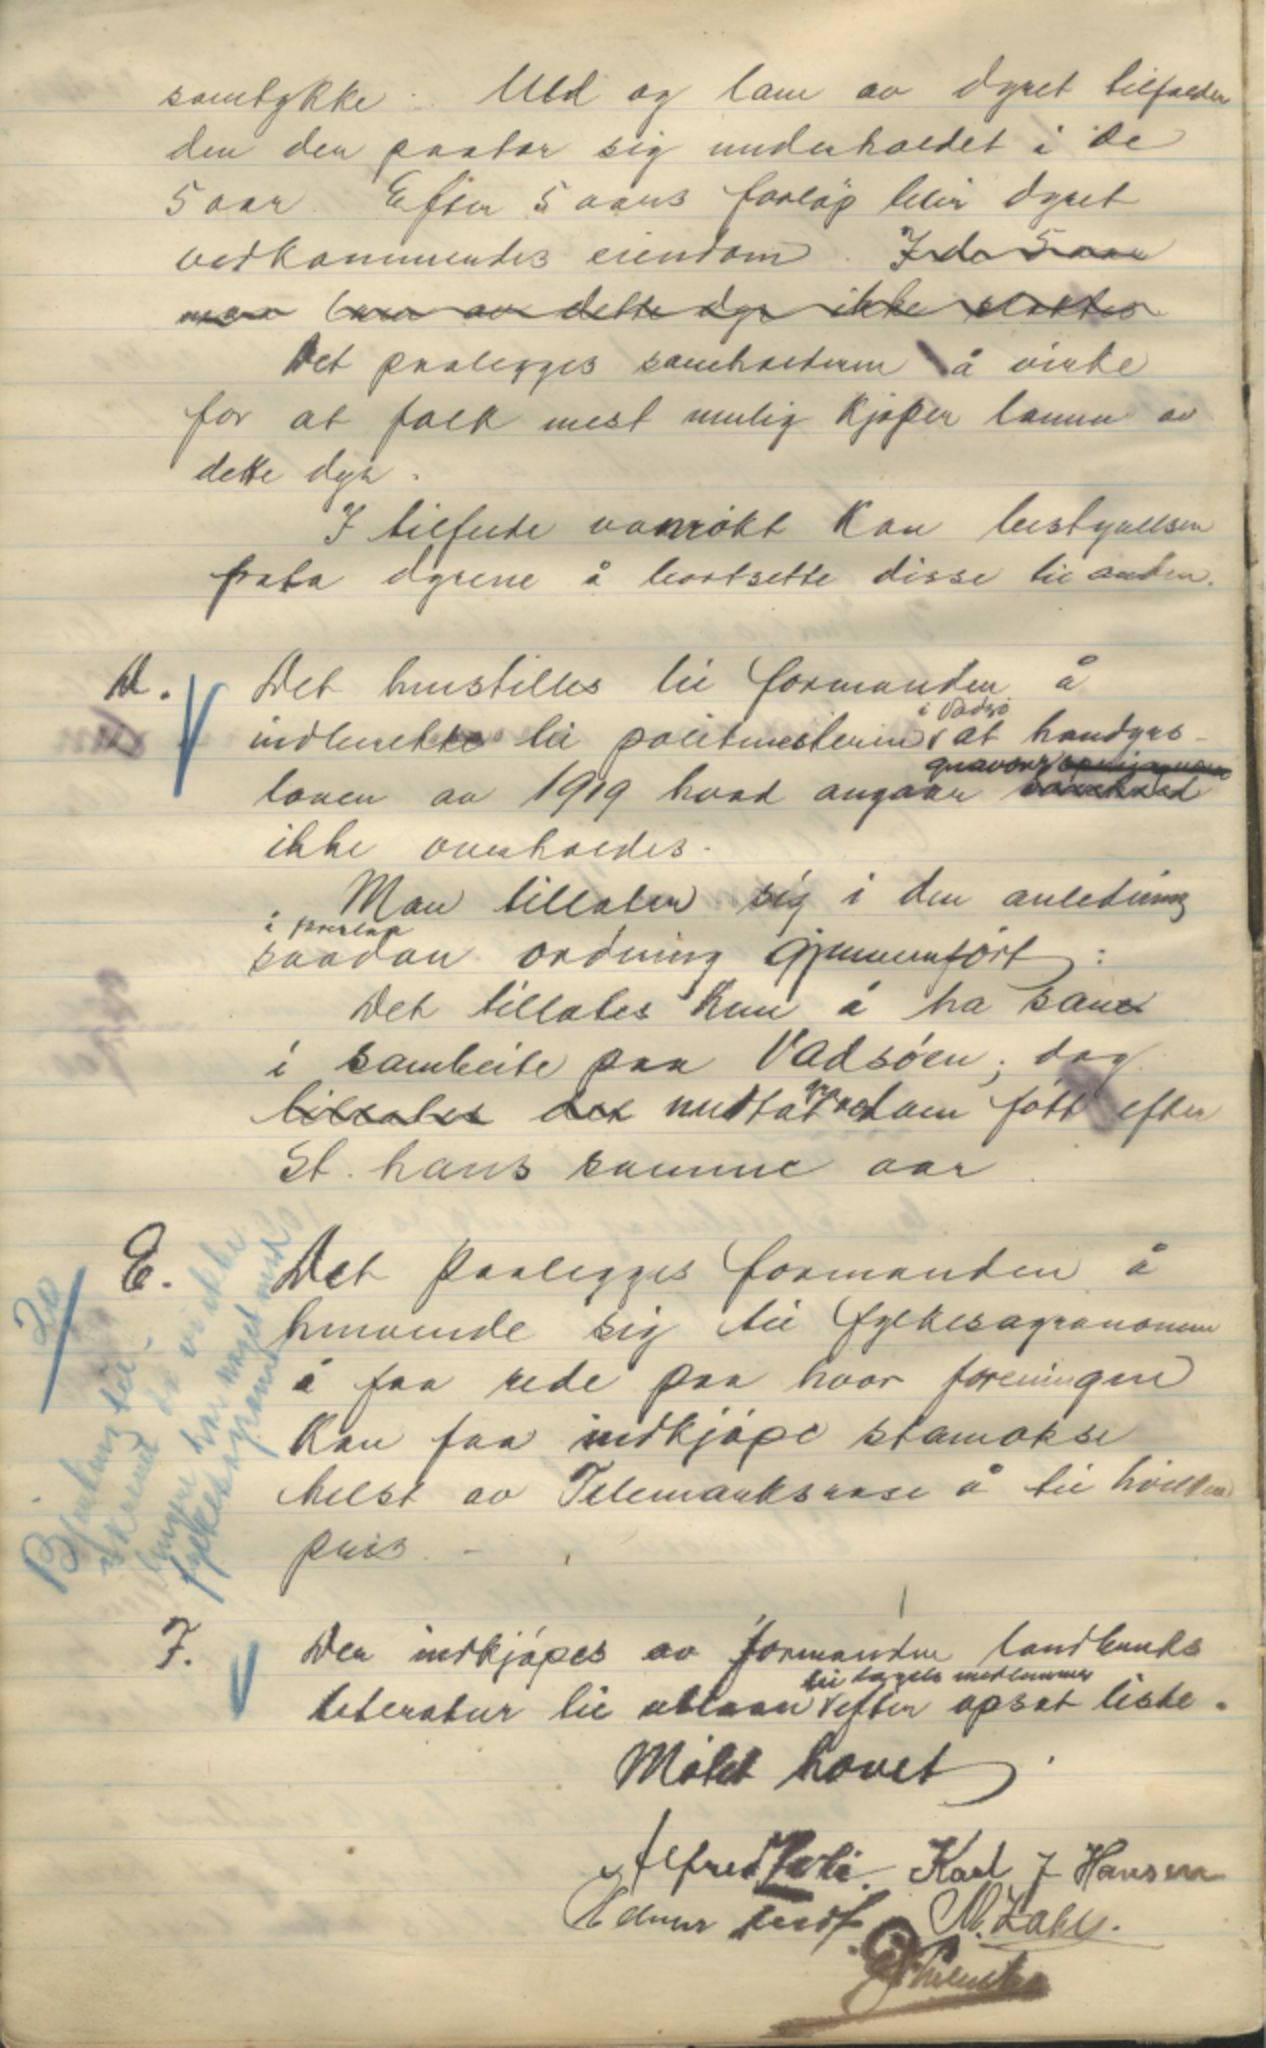 samtykke. Uld og lam av dyret tilfalder
den der paatar sig underholdet i de
5 aar. Efter 5 aars forløp blir dyret
vedkommendes eiendom. I de 5 aar
maa lam av dette dyr ikke slaktes
Det paalegges saueholderne å virke
for at folk mest mulig kjøper lammene av
dette dyr.
I tilfelde vanrøkt kan bestyrelsen
frata dyrene å bortsette disse til anden.
D. Det henstilles til formanden å
i Vadsø
indberette til politimesteren at handyrs-
gnavere
loven av 1919 hvad angaar
ikke overholdes.
Man tillater sig i den anledning
saadan ordning gjennemført:
Det tillates kun å ha sauer
i saubeite paa Vadsøen; dog
tillates det undtat lam født efter
St. hans samme aar
E. Det paalegges formanden å
henvende sig til fylkesagronomen
å faa rede paa hvor foreningen
kan faa indkjøpe stamokse
helst av Telemarksrase å til hvilken
pris. -
20
Bjørkeng til-
skrevet da vi ikke
lengere har noget med
fylkesagronom
F. Der indkjøpes av formanden landbruks
til lagets medlemmer
literatur til utlaan efter opsat liste.
Møtet hævet
Alfred Karl J Hansen
M. Zahl.